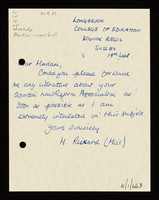 LONGBROOK
COLLEGE OF EDUCATION
BOGNOR REGIS
SUSSEX
19th Sept.
Dear Madam,
Could you please forward
me any literature about your
Abortion Law Reform Association as
soon as possible as I am
extremely interested in this subject
Yours sincerely
M. Rickard (Miss)